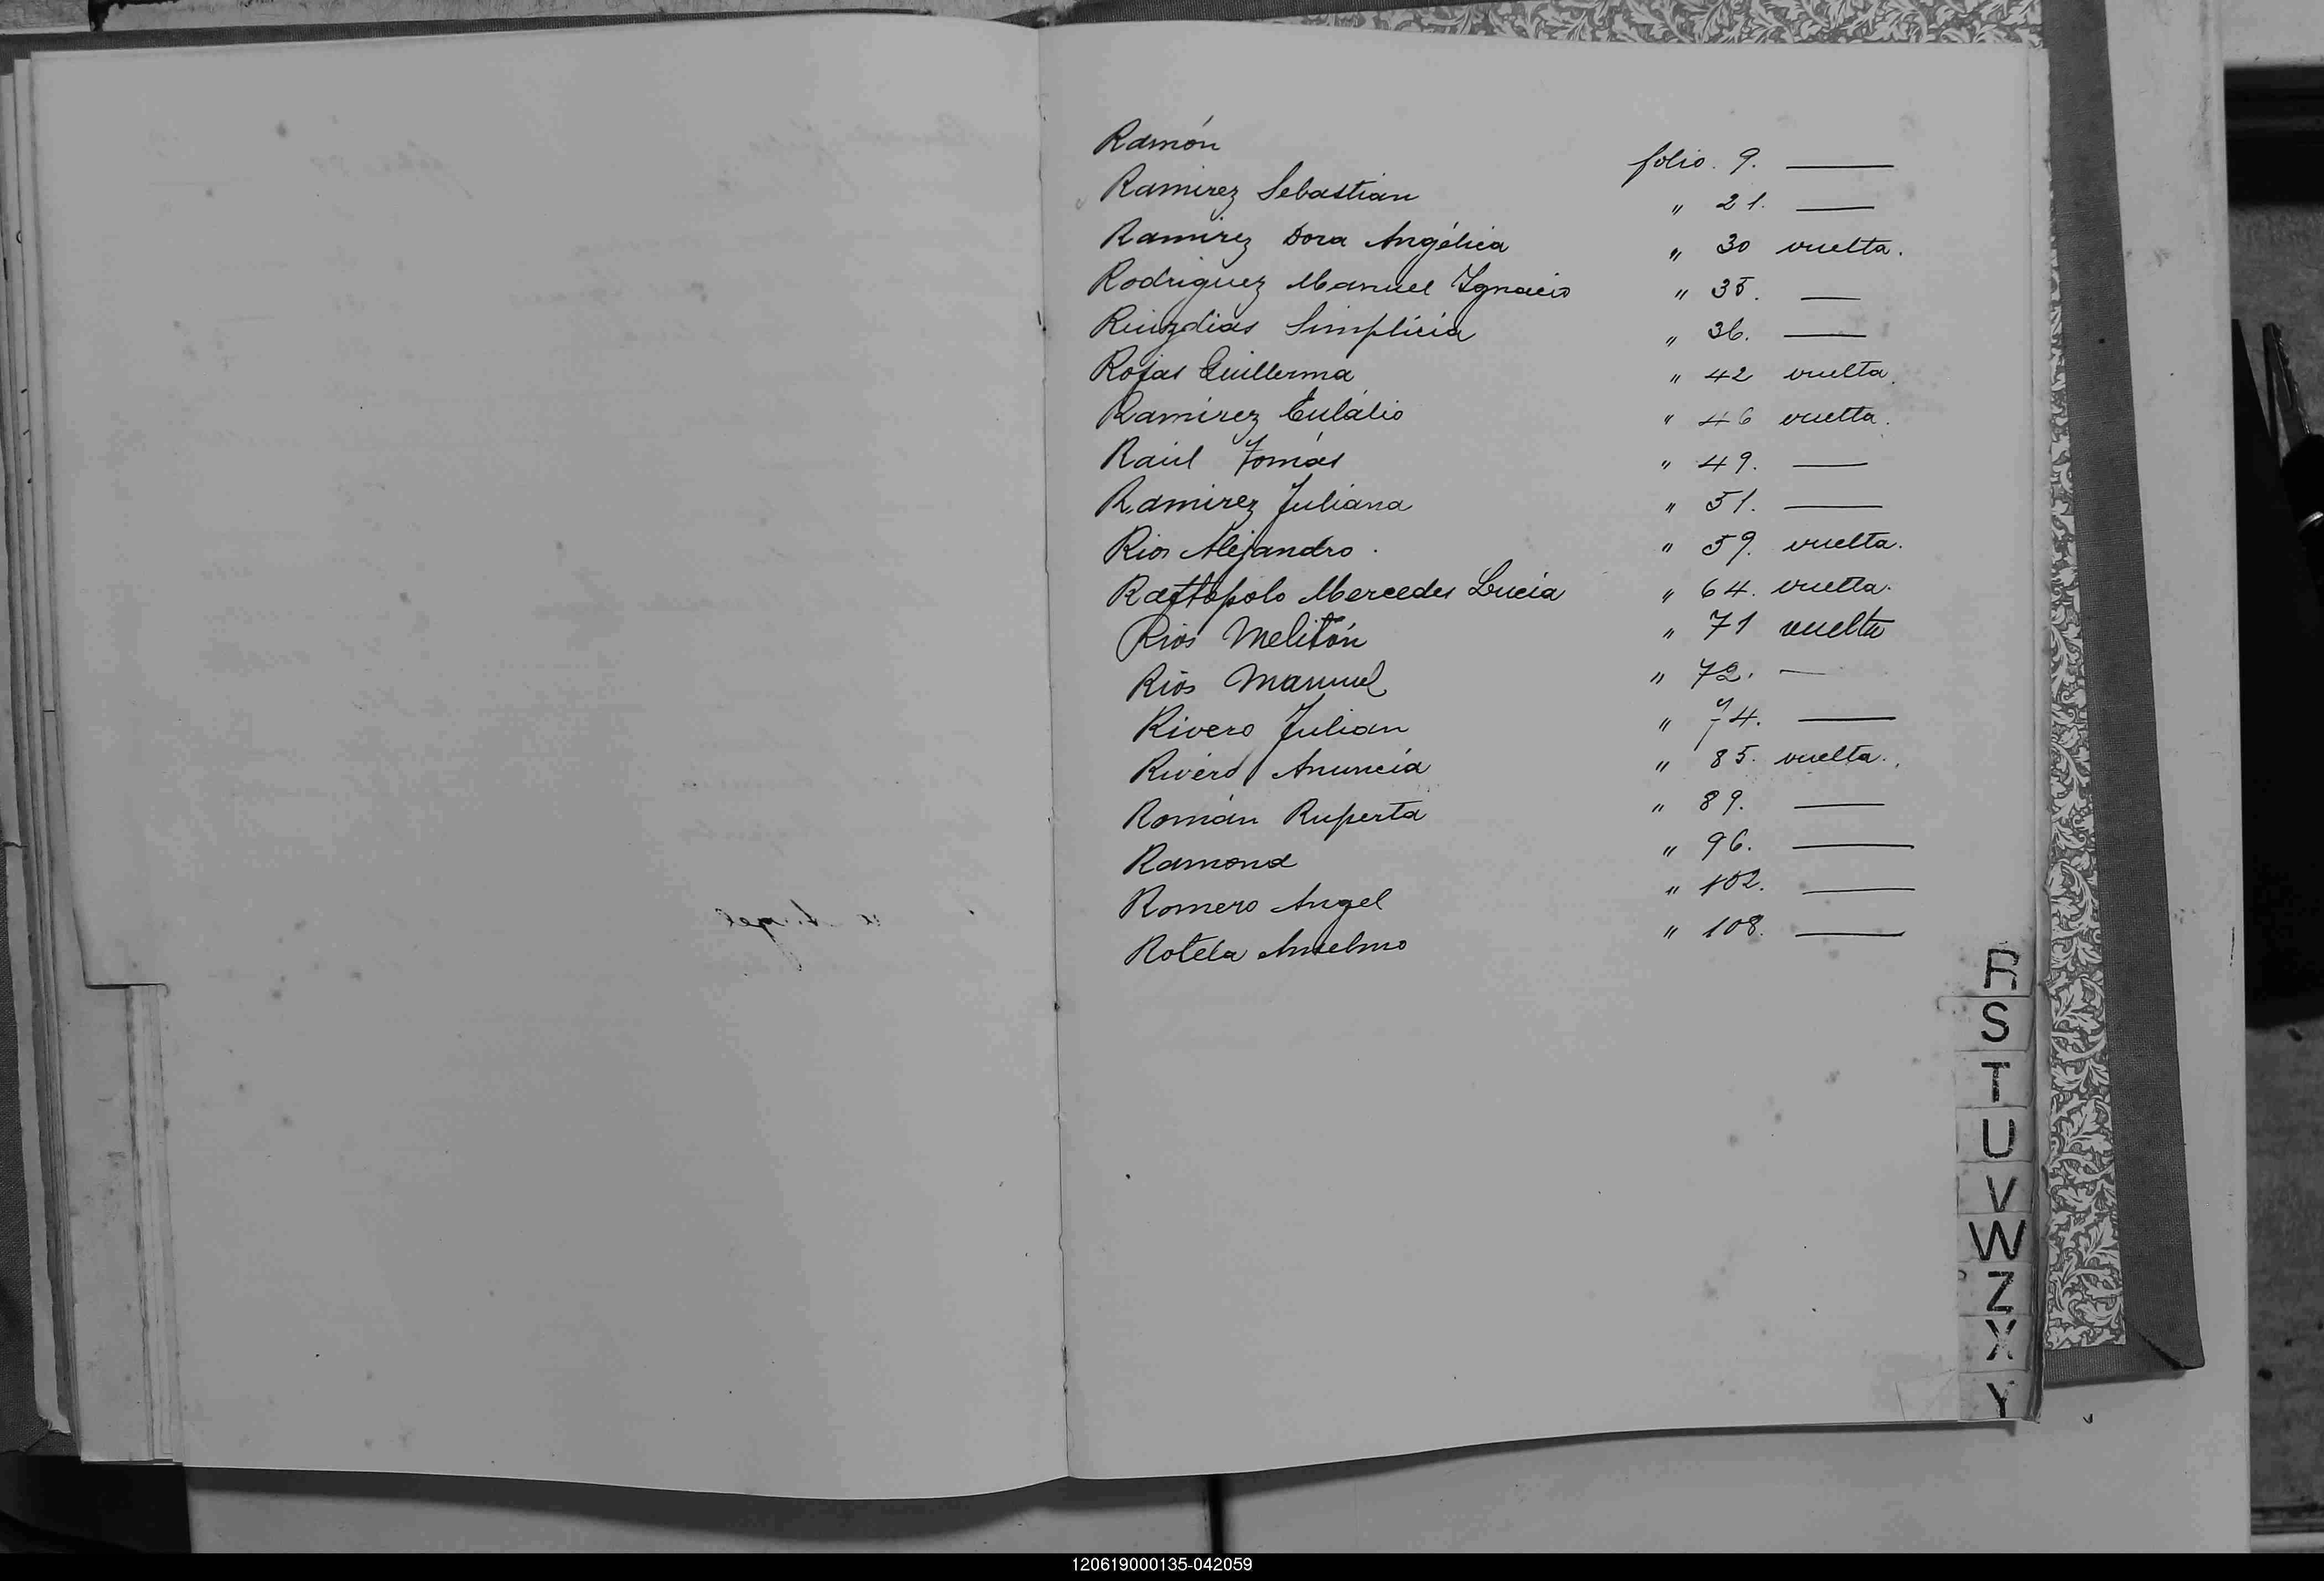 Ramón folio. 9. —
Ramirez Sebastián " 21. —
Ramirez Dora Angélica " 30 vuelta.
Rodriguez Manuel Ygnacio " 35. —
Simplicia " 36. —
Rojas Guillerma " 42 vuelta.
Ramírez Eulálio " 46 vuelta.
Raúl Tomás " 49. —
Ramirez Juliana " 51. —
Rios Alejandro. " 59. vuelta.
Mercedes Lucía " 64. vuelta.
Rios Melitón " 71 vuelta
Rios Manuel " 72. —
Rivero Julian " 74. —
Rivero Anuncia " 85. vuelta.
Román Ruperta " 89. —
Ramona " 96. —
Romero Angel " 102. —
Rotela Anselmo " 108. —
R
S
T
U
V
W
Z
X
Y
120619000135-042059